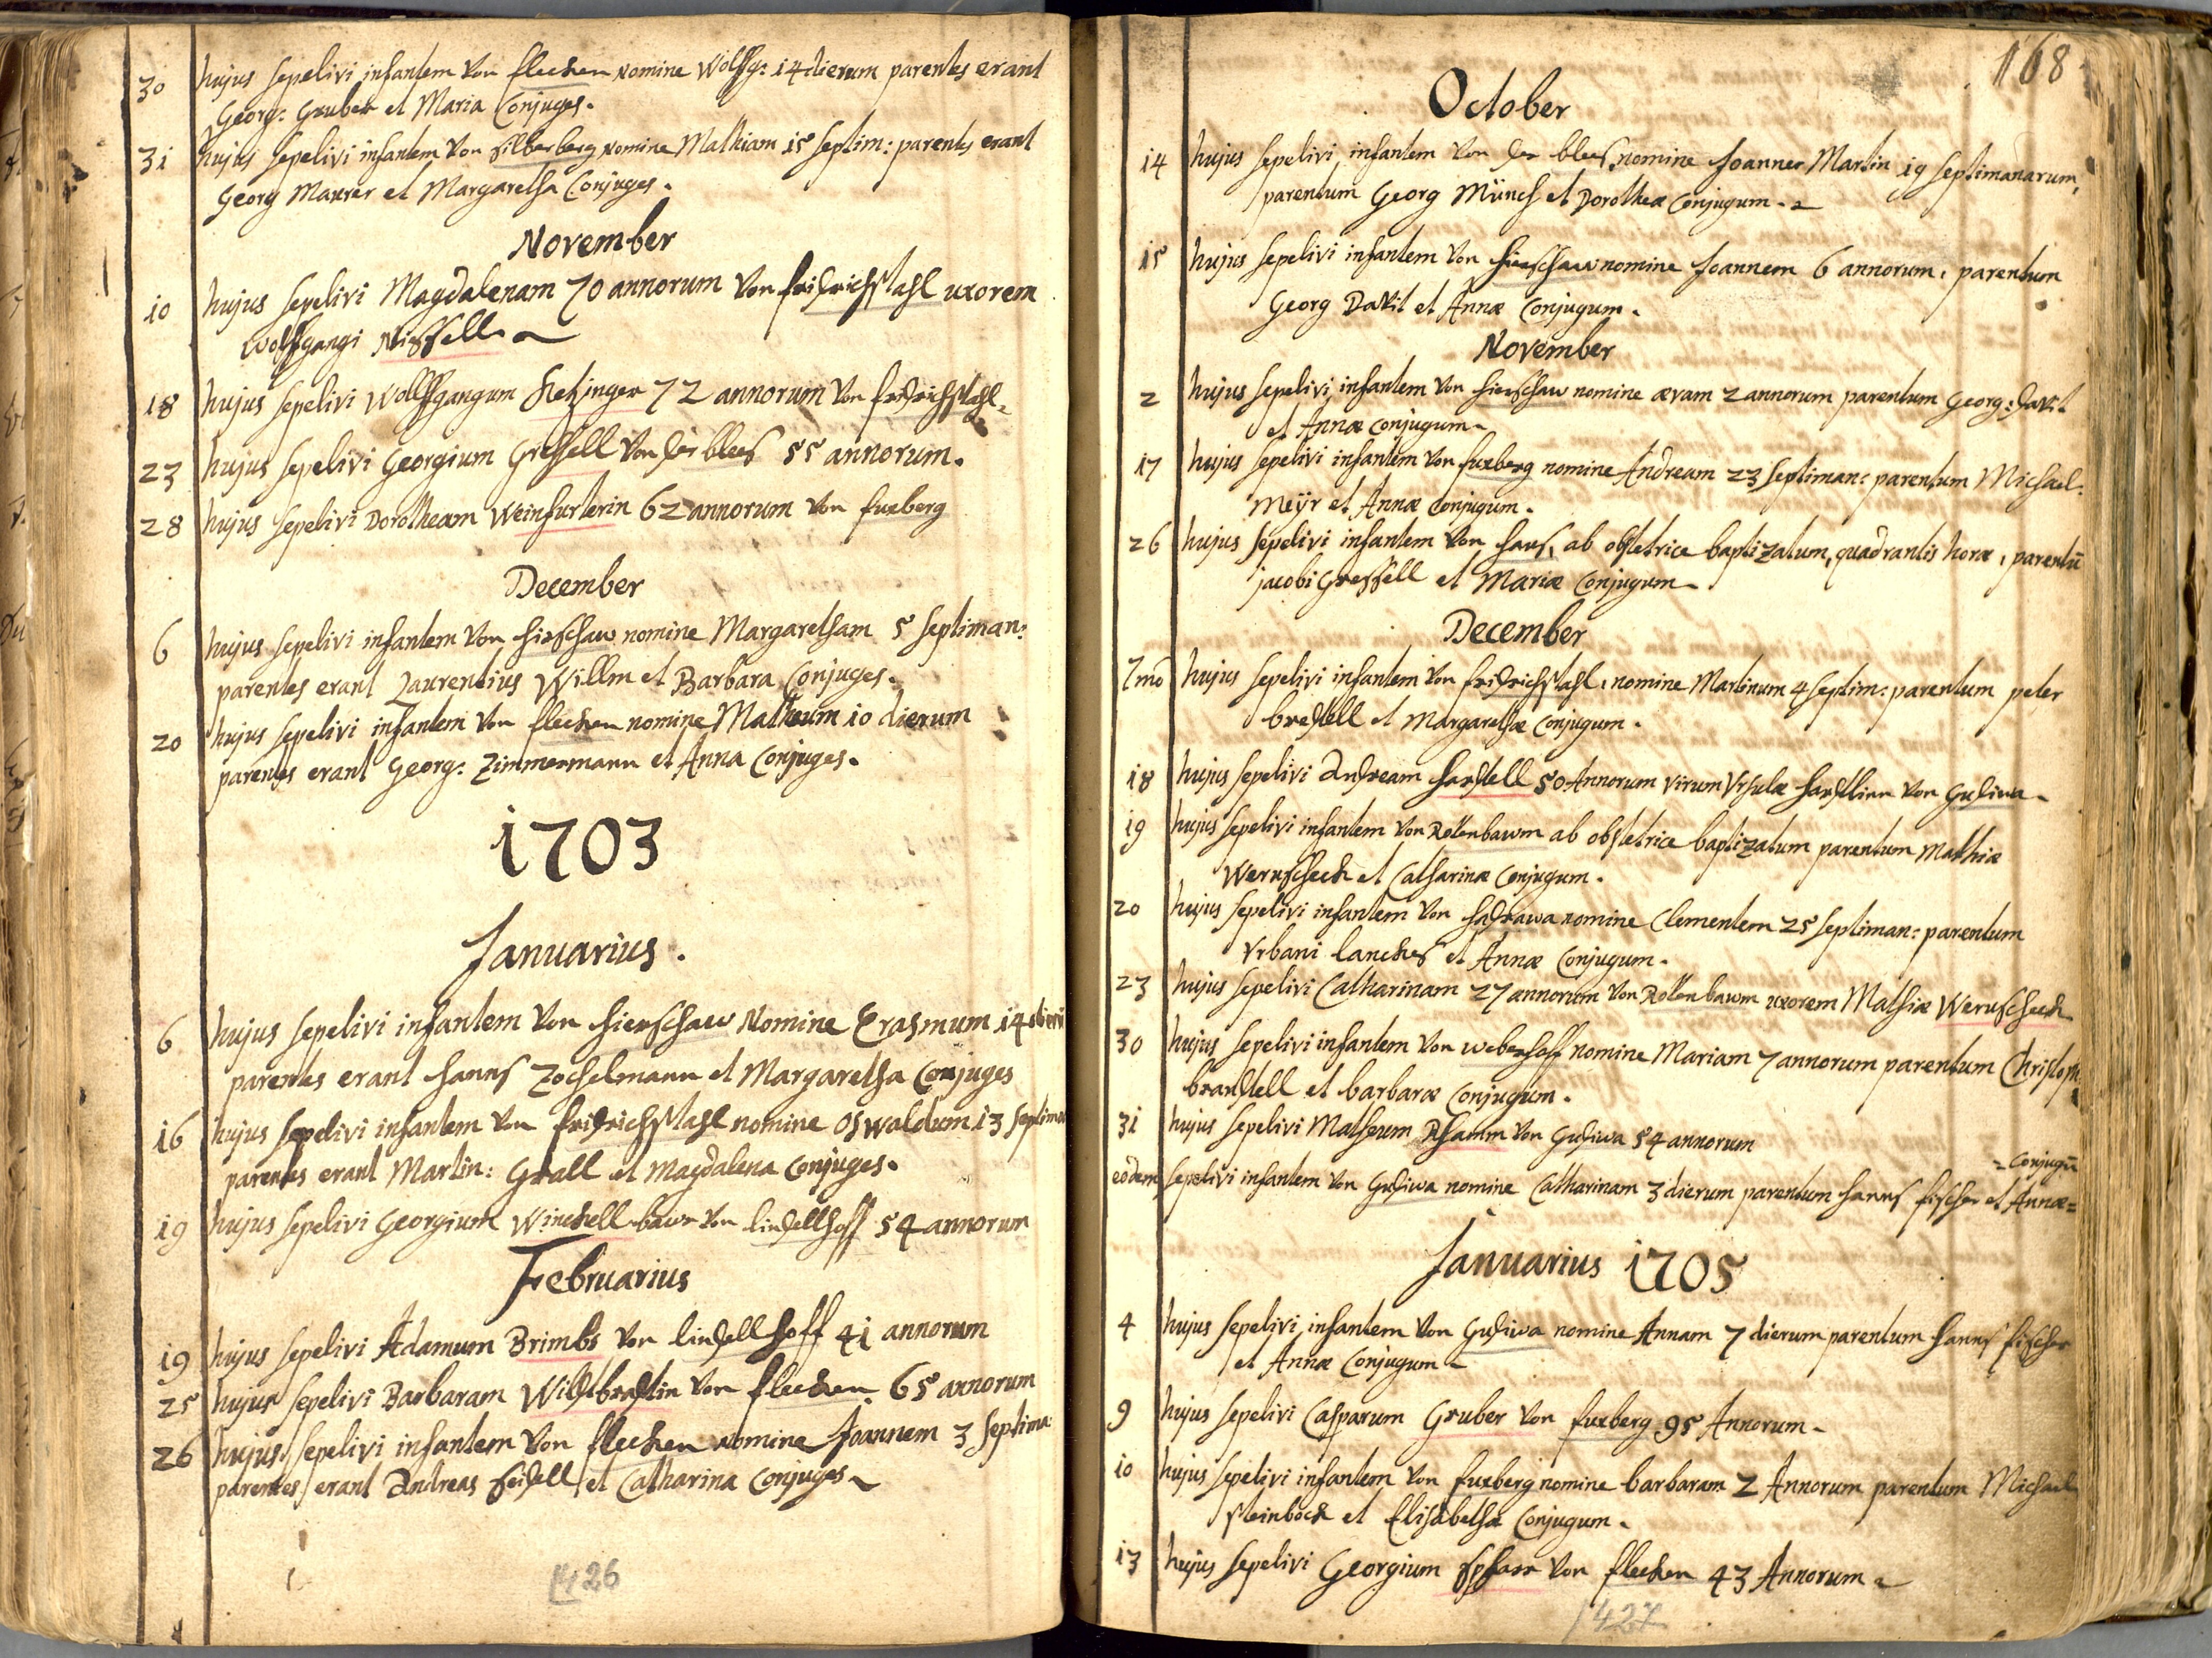 30 hujus sepelivi infantem von flecken nomine Wolfg: 14 dierum parentes erant
Georg: Gruber et Maria Conjuges.
31 hujus sepelivi infantem von silberberg nomine Mathiam 15 septim: parentes erant
Georg Maurer et Margaretha Conjuges.
November
10 hujus sepelivi Magdalenam 70 annorum von fridrichstahl uxorem
Wolfgangi
18 hujus sepelivi Wolffgangum 72 annorum von fridrichstahl
23 hujus sepelivi Georgium von der blees 55 annorum.
28 hujus sepelivi Dorotheam Weinfurterin 62 annorum von furberg
December
6 hujus sepelivi infantem von hirschaw nomine Margaretham 5 septiman:
parentes erant Laurentius Willm et Barbara Conjuges.
20 hujus sepelivi infantem von flecken nomine Matheum 10 dierum
parentes erant Georg: Zimmermann et Anna Conjuges.
1703
Januarius.
6 hujus sepelivi infantem von hierschaw Nomine Erasmum 14 dierū
parentes erant hanns Zochelmann et Margaretha Conjuges
16 hujus sepelivi infantem von fridrichstahl nomine Oswaldum 13 septima
parentes erant Martin: Grall et Magdalena Conjuges.
19 hujus sepelivi Georgium Winckell von lindellhoff 54 annorum
Februarius
19 hujus sepelivi Adamum Brimbs von lindellhoff 41 annorum
25 hujus sepelivi Barbaram von flecken 65 annorum
26 hujus sepelivi infantem von flecken nomine Joannem 3 septima
parentes erant Andreas seidell et Catharina Conjuges
1426
168
October
14 hujus sepelivi infantem von der blees nomine Joannes Martin 19 septimanarum,
parentum Georg Münch et Dorotheæ Conjugum.
15 hujus sepelivi infantem von hierschaw nomine Joannem 6 annorum, parentum
Georg Davit et Annæ Conjugum.
November
2 hujus sepelivi infantem von hierschaw nomine ævam 2 annorum parentum Georg: Davit
et Annæ Conjugum
17 hujus sepelivi infantem von furberg nomine Andream 23 septiman: parentum Michael:
Meÿr et Annæ Conjugum.
26 hujus sepelivi infantem von ab obstetrice baptizatum, quadrantis horæ, parentū
jacobi Gressell et Mariæ Conjugum
December
7mo hujus sepelivi infantem von fridrichstahl, nomine Martinum 4 septim: parentum peter
et Margarethæ Conjugum.
18 hujus sepelivi Andream 50 Annorum virum Vrsulæ von Gudiwa
19 hujus sepelivi infantem von Rottenbawm ab obstetrice baptizatum parentum Mathiæ
Weruscheck et Catharinæ Conjugum.
20 hujus sepelivi infantem von hadrawa nomine Clementem 25 septiman: parentum
Vrbani lanckes et Annæ Conjugum.
23 hujus sepelivi Catharinam 27 annorum von Rottenbawm uxorem Mathiæ Weruscheck
30 hujus sepelivi infantem von weberhoff nomine Mariam 7 annorum parentum Christoph
brandtell et barbaræ Conjugum.
31 hujus sepelivi Matheum Rhamm von Gudiwa 54 annorum
= Conjugū
eodem sepelivi infantem von Gudiwa nomine Catharinam 3 dierum parentum hanns fischer et Annæ =
Januarius 1705
4 hujus sepelivi infantem von Gudiwa nomine Annam 7 dierum parentum hanns fischer
et Annæ Conjugum
9 hujus sepelivi Casparum Gruber von furberg 95 Annorum
10 hujus sepelivi infantem von furberg nomine barbaram 2 Annorum parentum Michael
steinbock et Elisabethæ Conjugum.
13 hujus sepelivi Georgium von flecken 43 Annorum
1427